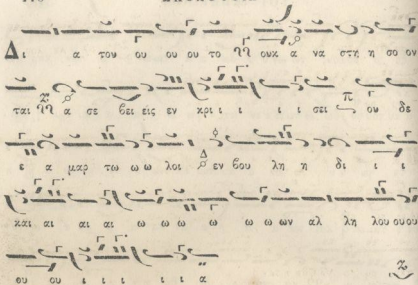 Δι α τον ου ου ου το ουκ α να στη η σο ον
ται α σε βει εις εν κρι ι ι ι ι σει ου δε
ε α μαρ τω ω ω λοι εν βου λη η δι ι ι
και αι αι αι ω ω ω ω ω ω ων αλ λη λου ου ου
ου ου ι ι ι ι ι α